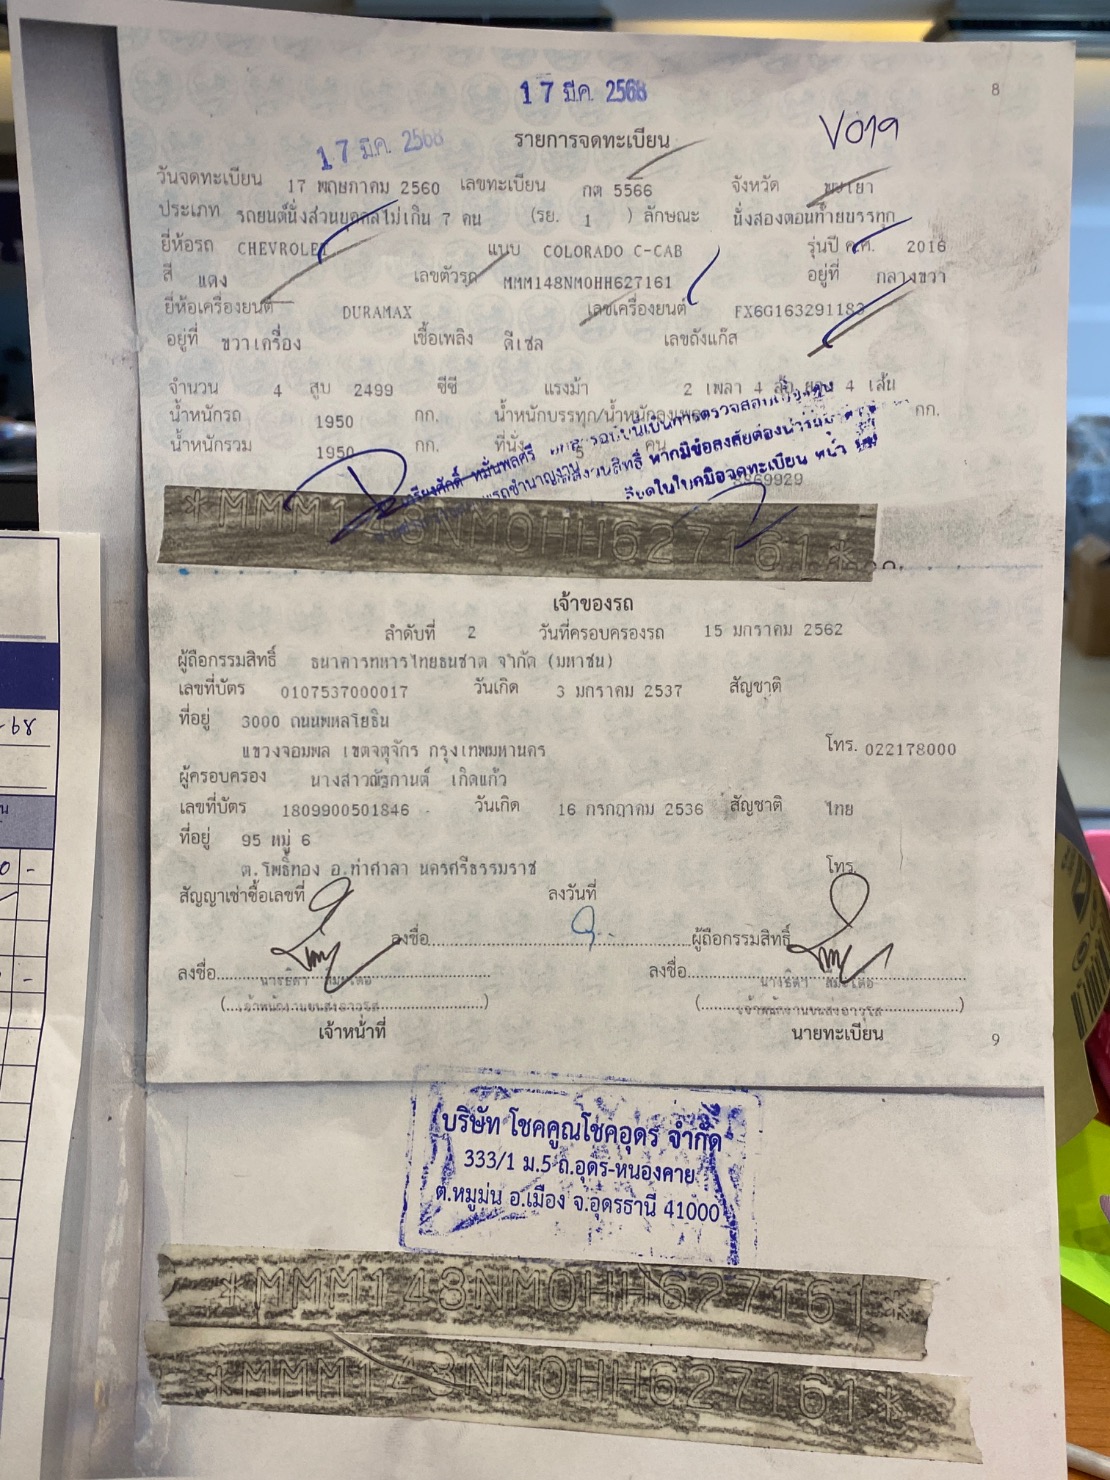 17 มี.ค. 2568
8
17 มี.ค. 2568
รายการจดทะเบียน
V019
วันจดทะเบียน 17 พฤษภาคม 2560 เลขทะเบียน กต 5566 จังหวัด พะเยา
ประเภท รถยนต์นั่งส่วนบุคคลไม่เกิน 7 คน (รย. 1 ) ลักษณะ นั่งสองตอนท้ายบรรทุก
ยี่ห้อรถ CHEVROLET แบบ COLORADO C-CAB รุ่นปี ค.ศ. 2016
สี แดง เลขตัวรถ MMM148NM0HH627161 อยู่ที่ กลางขวา
ยี่ห้อเครื่องยนต์ DURAMAX เลขเครื่องยนต์ FX6G163291183
อยู่ที่ ขวาเครื่อง เชื้อเพลิง ดีเซล เลขถังแก๊ส
จำนวน 4 สูบ 2499 ซีซี แรงม้า 2 เพลา 4 ล้อ ยาง 4 เส้น
น้ำหนักรถ 1950 กก. น้ำหนักบรรทุก/น้ำหนักลงเพลา กก.
น้ำหนักรวม 1950 กก. ที่นั่ง 5 คน
หากมีข้อสงสัยต้องนำรถ
ในใบคู่มือจดทะเบียน หน้า
69929
*MMM148NM0HH627161*
เจ้าของรถ
ลำดับที่ 2 วันที่ครอบครองรถ 15 มกราคม 2562
ผู้ถือกรรมสิทธิ์ ธนาคารทหารไทยธนชาต จำกัด (มหาชน)
เลขที่บัตร 0107537000017 วันเกิด 3 มกราคม 2537 สัญชาติ
ที่อยู่ 3000 ถนนพหลโยธิน
แขวงจอมพล เขตจตุจักร กรุงเทพมหานคร โทร. 022178000
ผู้ครอบครอง นางสาวณัฐกานต์ เกิดแก้ว
เลขที่บัตร 1809900501846 วันเกิด 16 กรกฎาคม 2536 สัญชาติ ไทย
ที่อยู่ 95 หมู่ 6
ต.โพธิ์ทอง อ.ท่าศาลา นครศรีธรรมราช โทร.
สัญญาเช่าซื้อเลขที่ ลงวันที่
ลงชื่อ ผู้ถือกรรมสิทธิ์
ลงชื่อ ลงชื่อ
(เจ้าพนักงานขนส่งอาวุโส) (เจ้าพนักงานขนส่งอาวุโส)
เจ้าหน้าที่ นายทะเบียน
9
บริษัท โชคคูณโชคอุดร จำกัด
333/1 ม.5 ถ.อุดร-หนองคาย
ต.หมูม่น อ.เมือง จ.อุดรธานี 41000
*MMM148NM0HH627161
*MMM148NM0HH627161*